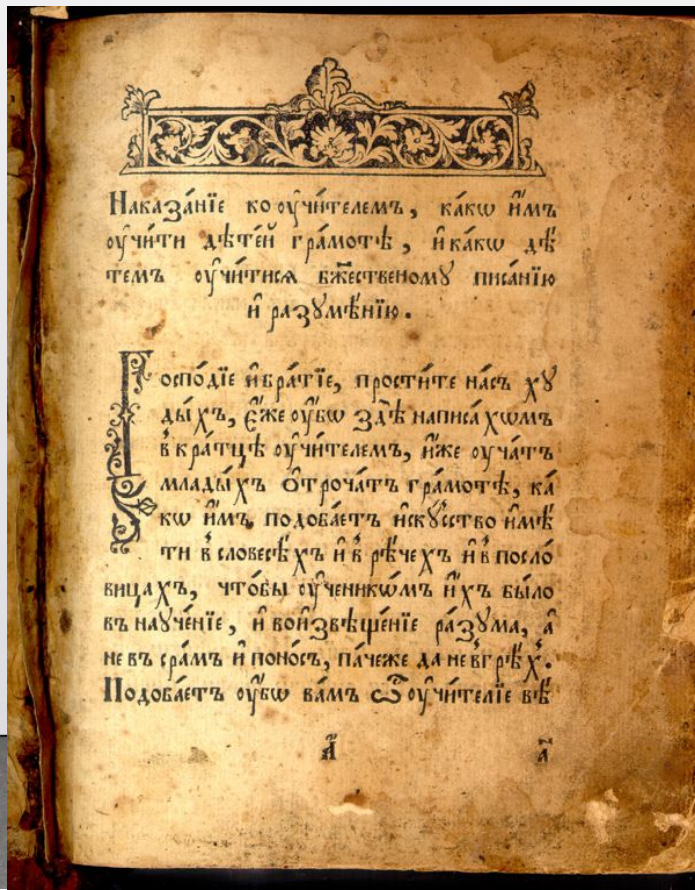 Наказа́нїе ко ᲂу҆чи́телемъ, ка́кѡ и҆̀мъ
ᲂу҆чи́ти дѣте́й гра́мотѣ, и҆ ка́кѡ дѣ́
темъ ᲂу҆чи́тисѧ бж҃ественомꙋ писа́нїю
и҆ разꙋмѣ́нїю.
Госпо́дїе и҆ бра́тїе, прости́те на́съ хꙋ
ды́хъ, є҆́же ᲂу҆́бѡ здѣ̀ написа́хомъ
в кра́тцѣ ᲂу҆чи́телемъ, и҆́же ᲂуча́тъ
млады́хъ ѻ҆троча́тъ гра́мотѣ, ка́
кѡ и҆̀мъ, подоба́етъ искꙋ́сство и҆мѣ́
ти в словесѣ́хъ и҆ в рѣ́чехъ и҆ в посло́
вицахъ, что́бы ᲂу҆ченикѡ́мъ и҆́хъ бы́ло
въ наꙋче́нїе, и҆ во и҆звѣще́нїе ра́зꙋма, а҆
не въ сра́мъ и҆ поно́съ, па́чеже да не в грѣ́х.
Подоба́етъ ᲂу҆́бѡ ва́мъ ѽ ᲂу҆чи́телїе вѣ́
а҃
а҃